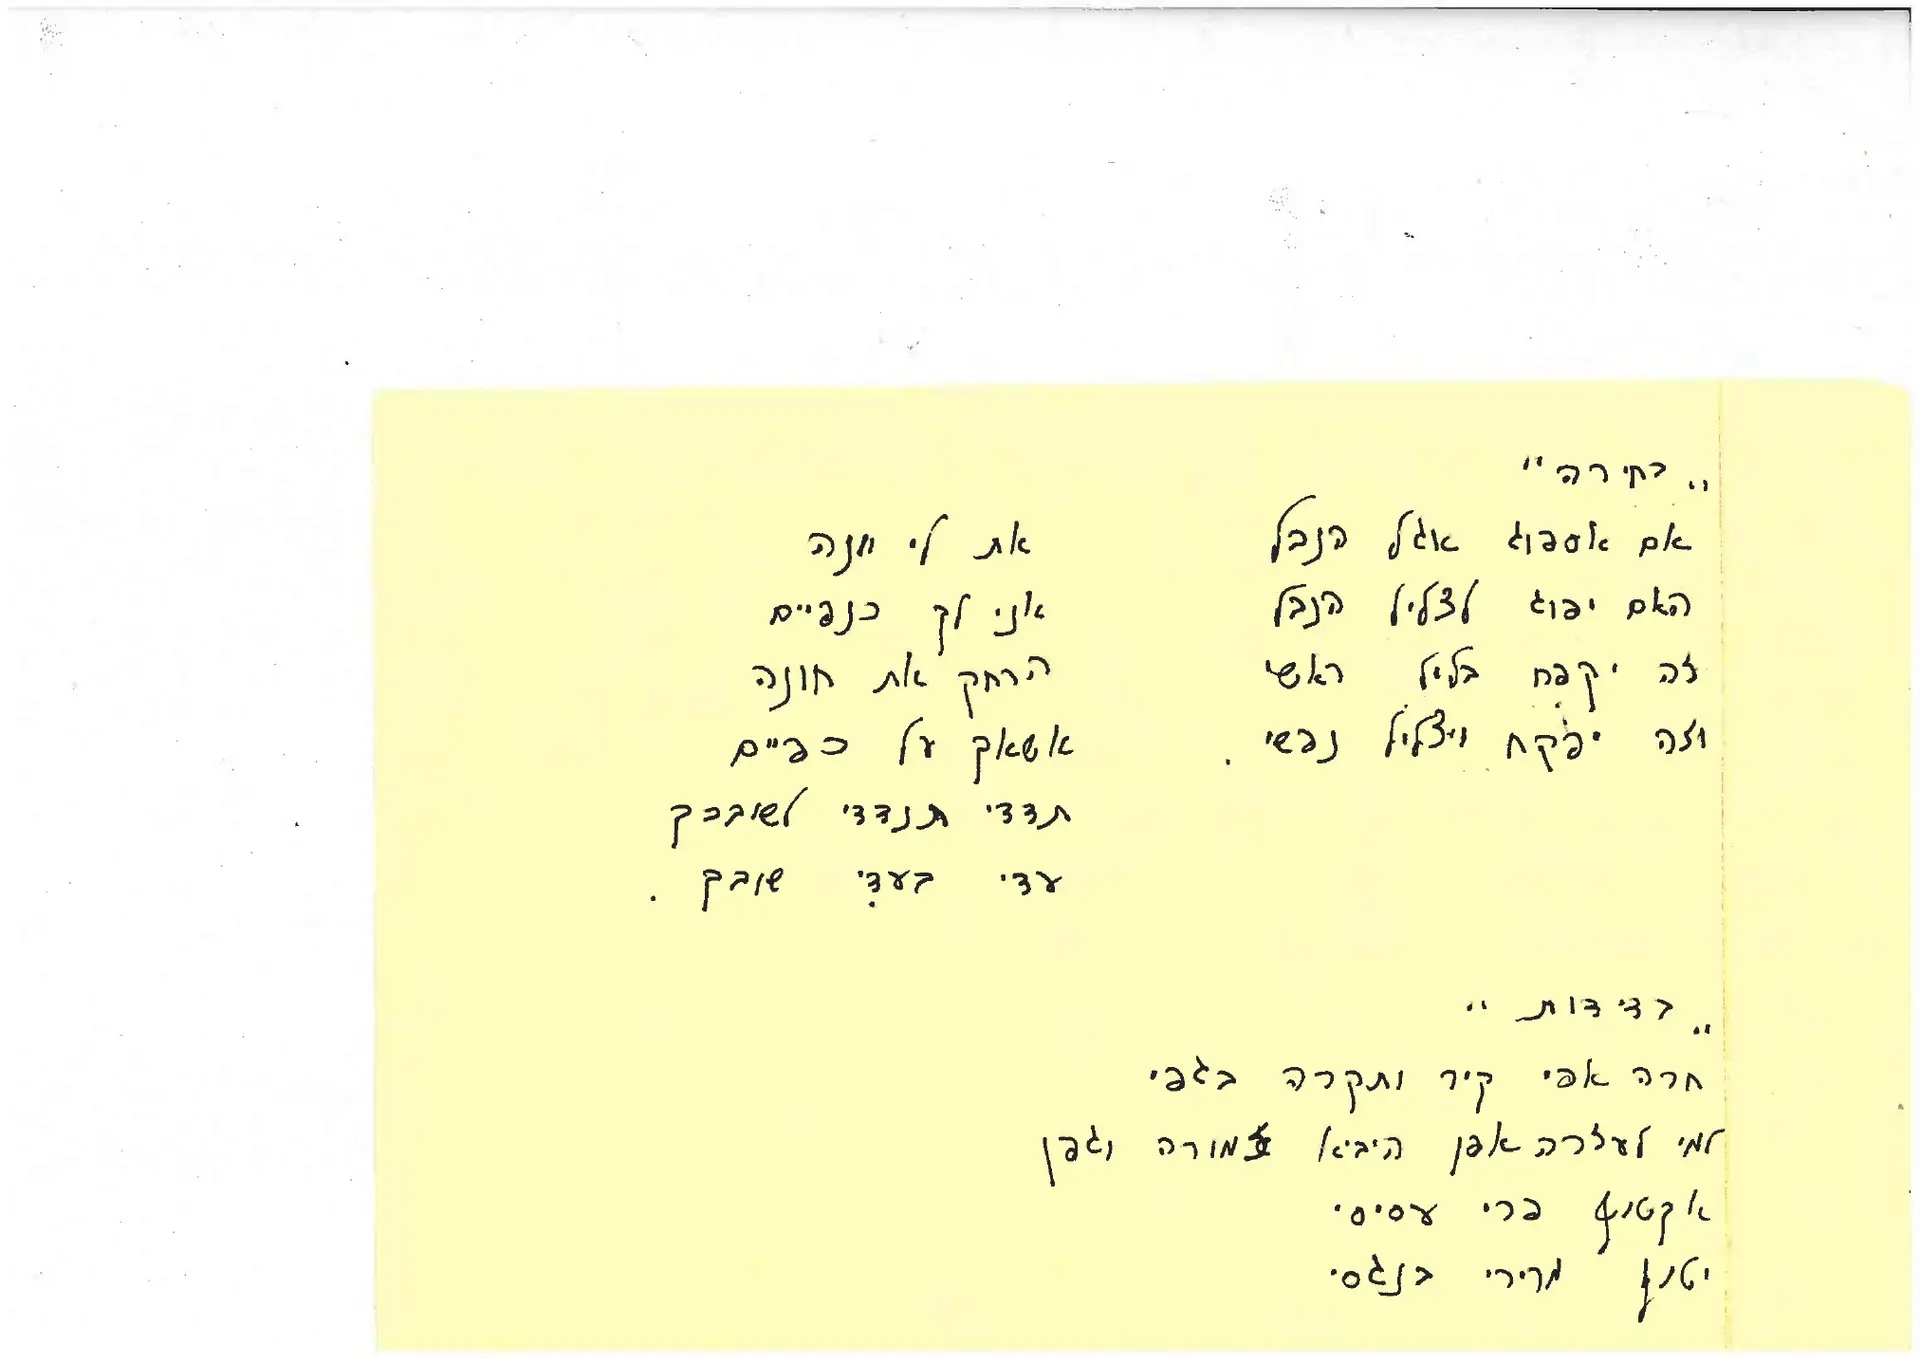 „בחירה"
אם אספוג אגל הנבל
האם יפוג לצליל הנבל
זה יקפח בליל ראשי
וזה יפקח ויצליל נפשי.
את לי יונה
אני לך כנפיים
הרחק את חונה
אשאך על כפיים
תדדי תנדדי לשובכך
עדי בעדי שובך.
„בדידות"
חרה אפי קיר ותקרה בגפי
למי לעזרה אפן היביא זמורה וגפן
אקטוף פרי עסיסי
יטוף מרירי בנגסי